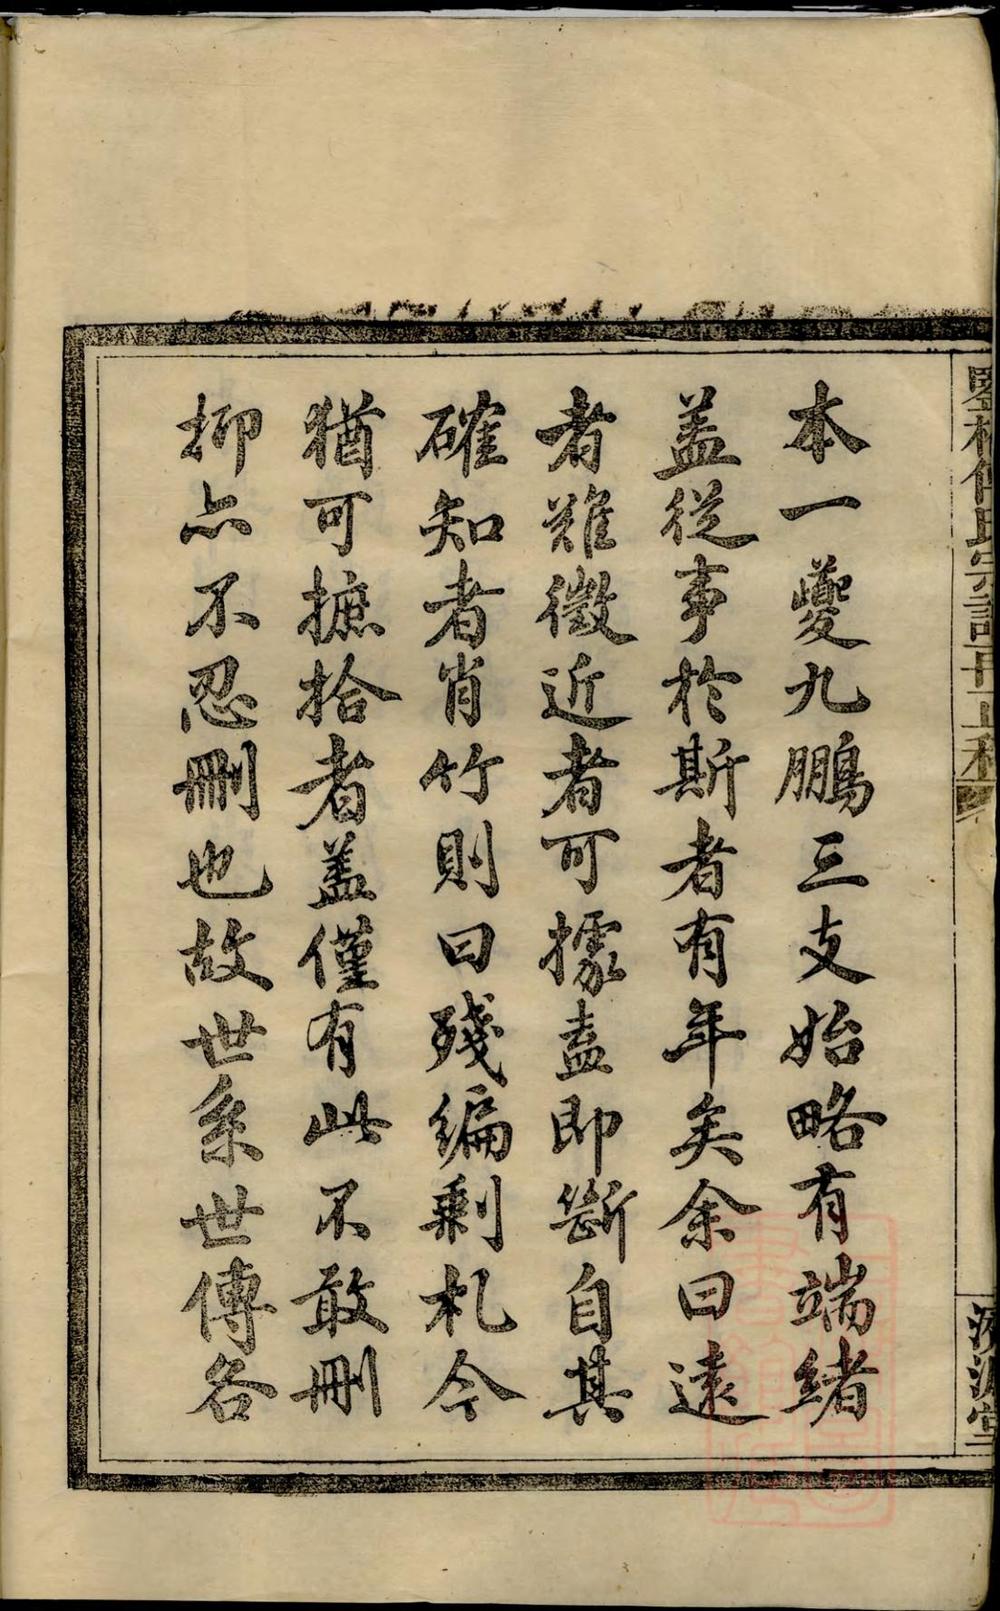 本一夔九鵬三支始略有端緒
盖從事於斯者有年矣余曰遠
者難徵近者可據盍即斷自其
確知者肖竹則曰殘編剩札今
猶可摭拾者盖僅有此不敢刪
抑亦不忍刪也故世系世傳各